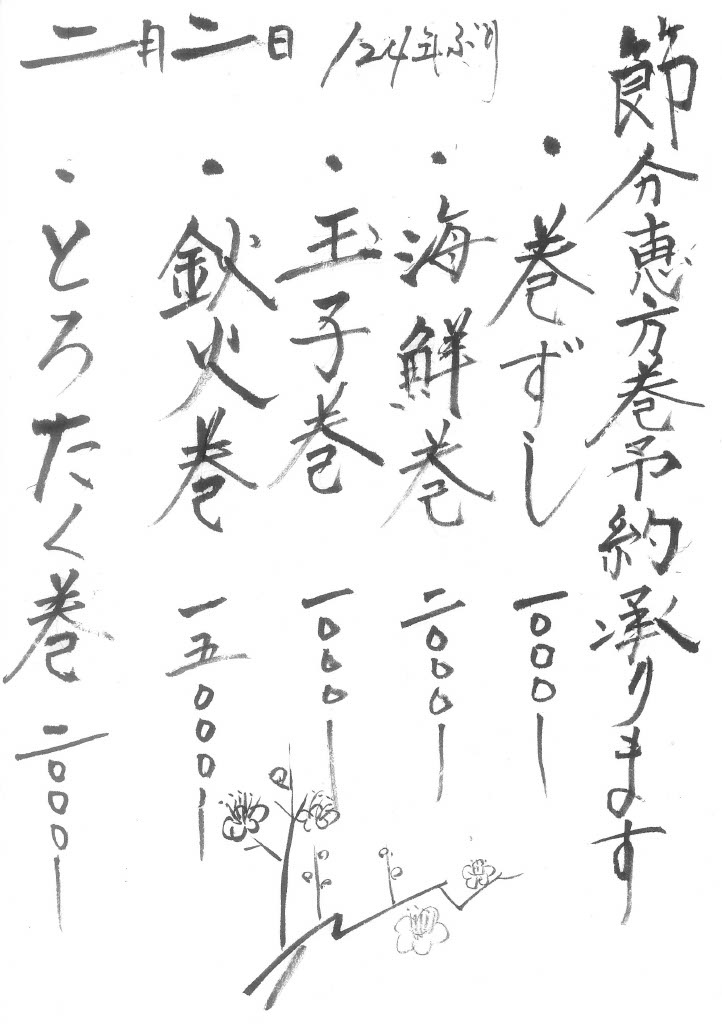 節分恵方巻予約承ります
・巻ずし 一〇〇〇ー
・海鮮巻 二〇〇〇ー
・玉子巻 一〇〇〇ー
・鉄火巻 一五〇〇〇ー
・とろたく巻 二〇〇〇ー
二月二日 124年ぶり